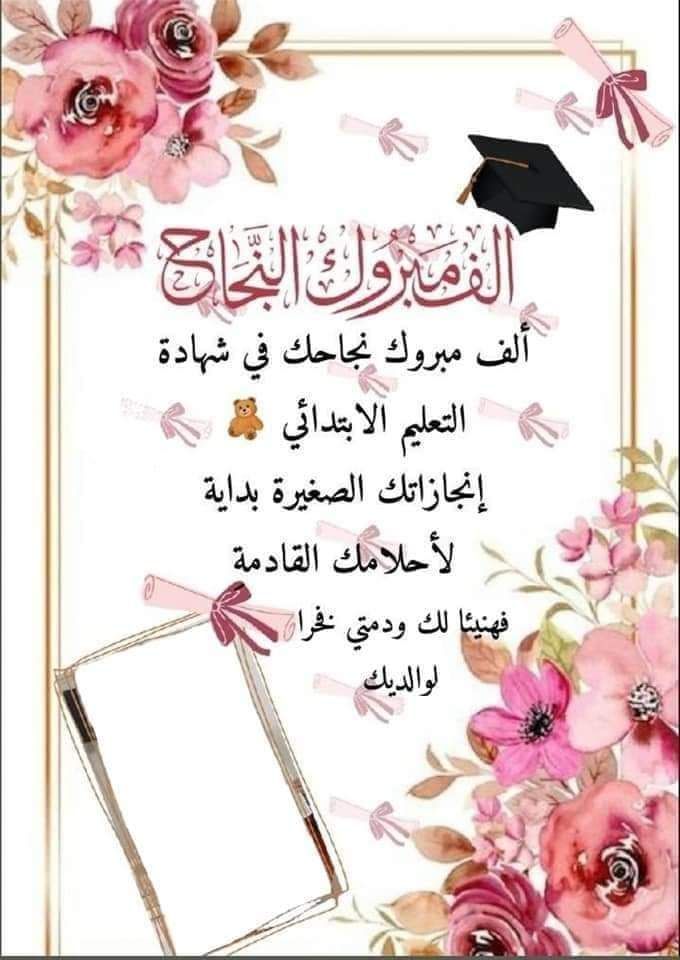 الف مَبْرُوك النَّجَاح
ألف مبروك نجاحك في شهادة
التعليم الابتدائي 🧸
إنجازاتك الصغيرة بداية
لأحلامك القادمة
فهنيئا لك ودمتي فخرا
لوالديك